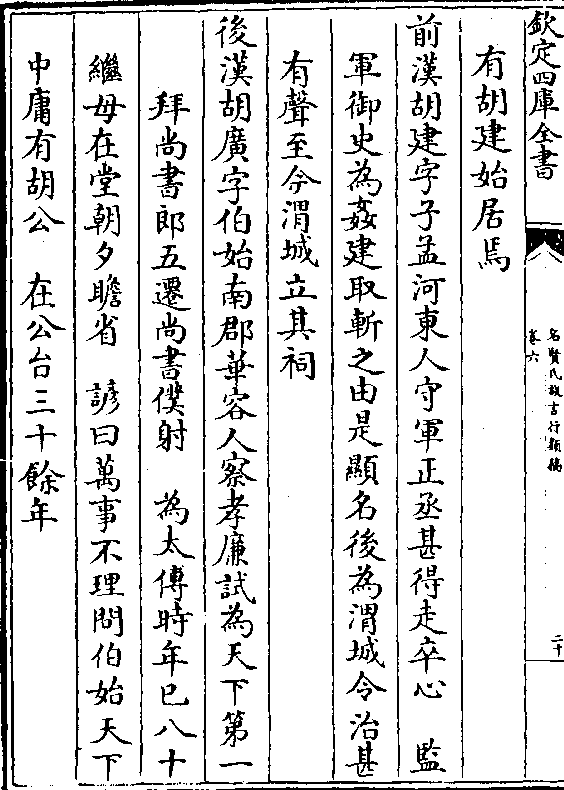 欽定四庫全書
名賢氏族言行類稿
卷六
二十
有胡建始居焉
前漢胡建字子孟河東人守軍正丞甚得走卒心 監
軍御史為姦建取斬之由是顯名後為渭城令治甚
有聲至今渭城立其祠
後漢胡廣字伯始南郡華容人察孝廉試為天下第一
拜尚書郎五遷尚書僕射 為太傅時年已八十
繼母在堂朝夕瞻省 諺曰萬事不理問伯始天下
中庸有胡公 在公台三十餘年